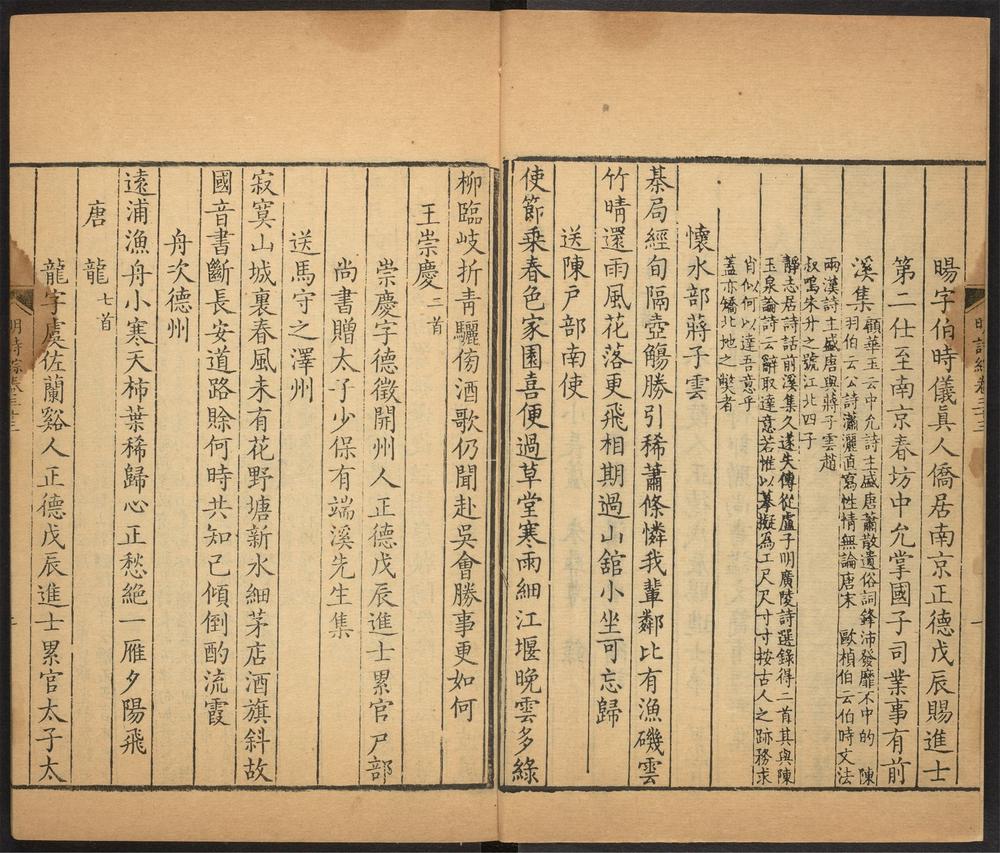 暘字伯時儀眞人僑居南京正德戊辰賜進士
第二仕至南京春坊中允掌國子司業事有前
溪集
顧華玉云中允詩主盛唐蕭散遺俗詞鋒沛發靡不中的　陳
羽伯云公詩瀟灑直寫性情無論唐宋　歐楨伯云伯時文法
兩漢詩主盛唐與蔣子雲趙
叔鳴朱升之號江北四子
靜志居詩話前溪集久遂失傳從盧子明廣陵詩選錄得二首其與陳
玉泉論詩云辭取達意若惟以摹擬為工尺尺寸寸按古人之跡務求
肖似何以達吾意乎
蓋亦矯北地之獘者
懷水部蔣子雲
棊局經旬隔壺觴勝引稀蕭條憐我輩鄰比有漁磯雲
竹晴還雨風花落更飛相期過山舘小坐可忘歸
送陳戶部南使
使節乘春色家園喜便過草堂寒雨細江堰晚雲多綠
明詩綜卷三十三
柳臨岐折青驪傍酒歌仍聞赴吳會勝事更如何
王崇慶二首
崇慶字德徵開州人正德戊辰進士累官戸部
尚書贈太子少保有端溪先生集
送馬守之澤州
寂寞山城裏春風未有花野塘新水細茅店酒旗斜故
國音書斷長安道路賒何時共知己傾倒酌流霞
舟次德州
遠浦漁舟小寒天柿葉稀歸心正愁絕一雁夕陽飛
唐　龍七首
龍字虞佐蘭谿人正德戊辰進士累官太子太
明詩綜卷三十三